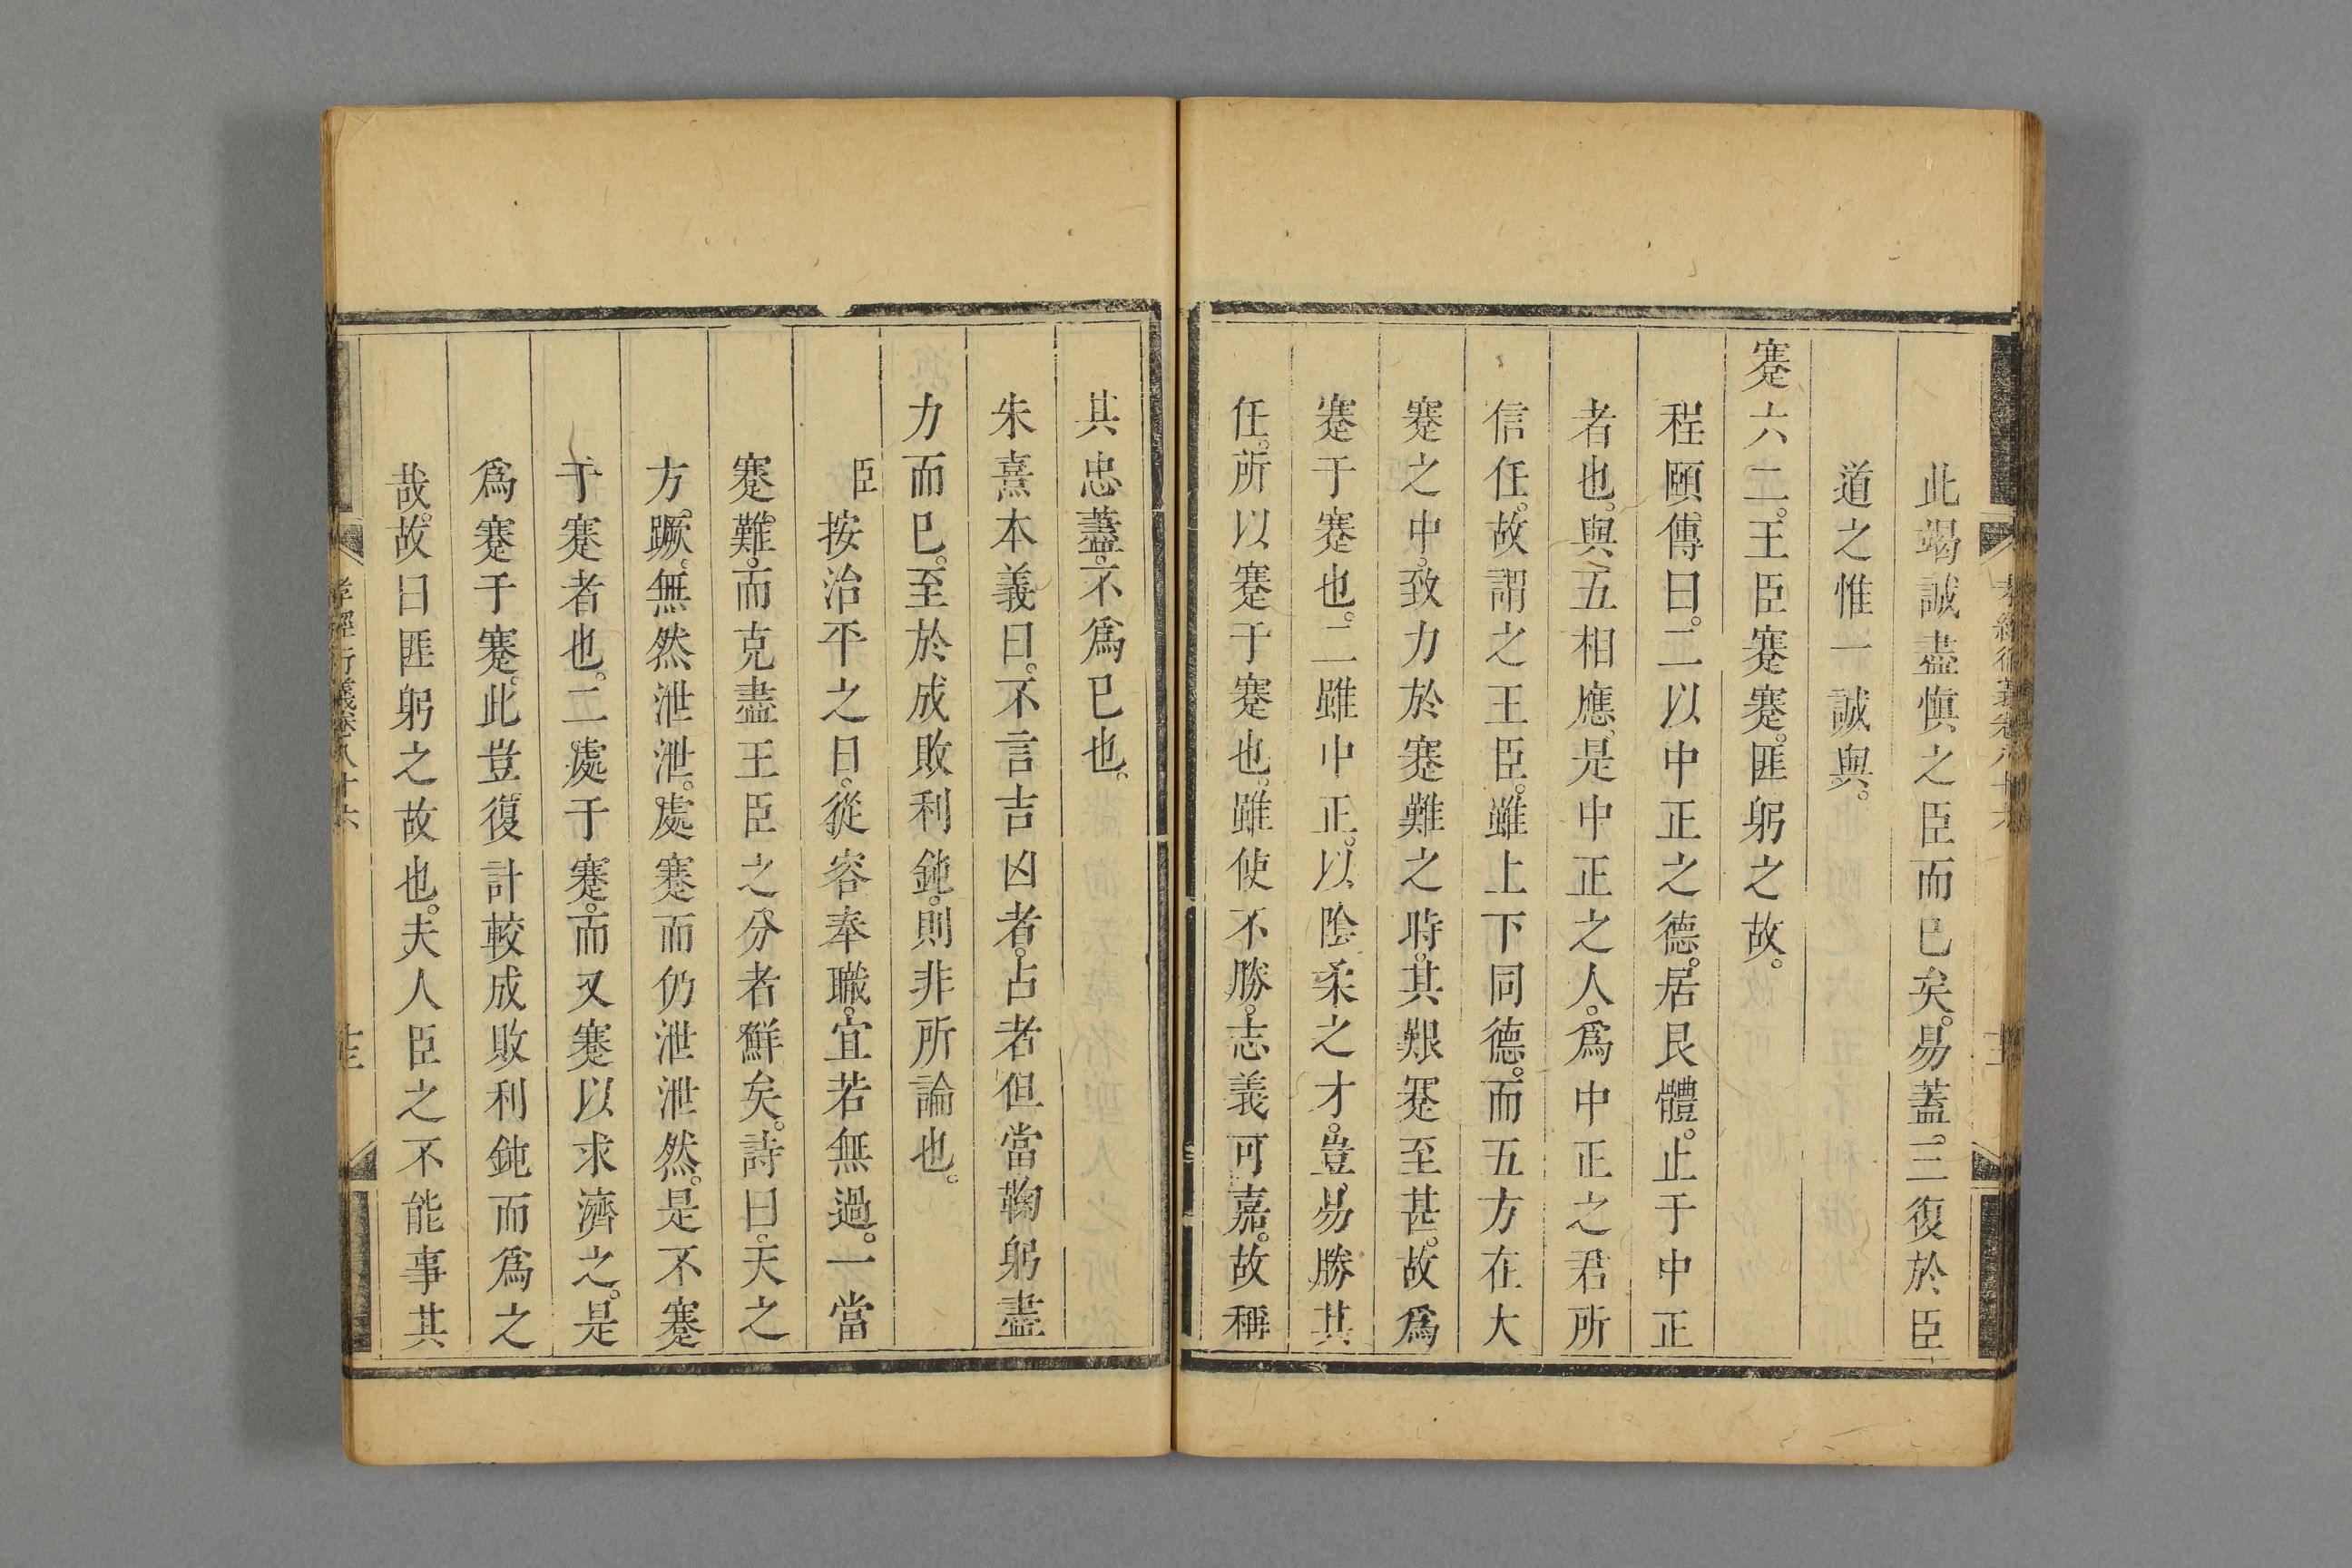 此竭誠盡愼之臣而已矣。易蓋三復於臣
道之惟一誠與。
蹇六二。王臣蹇蹇。匪躬之故。
程頤傳曰。二以中正之德。居艮體。止于中正
者也。與五相應。是中正之人。爲中正之君所
信任。故謂之王臣。雖上下同德。而五方在大
蹇之中。致力於蹇難之時。其艱蹇至甚。故爲
蹇于蹇也。二雖中正。以陰柔之才。豈易勝其
任。所以蹇于蹇也。雖使不勝。志義可嘉。故稱
其忠藎。不爲已也。
朱熹本義曰。不言吉凶者。占者但當鞠躬盡
力而已。至於成敗利鈍。則非所論也。
臣按治平之日。從容奉職。宜若無過。一當
蹇難。而克盡王臣之分者鮮矣。詩曰。天之
方蹶。無然泄泄。處蹇而仍泄泄然。是不蹇
于蹇者也。二處于蹇。而又蹇以求濟之。是
爲蹇于蹇。此豈復計較成敗利鈍而爲之
哉。故曰匪躬之故也。夫人臣之不能事其
孝經衍義卷八十六